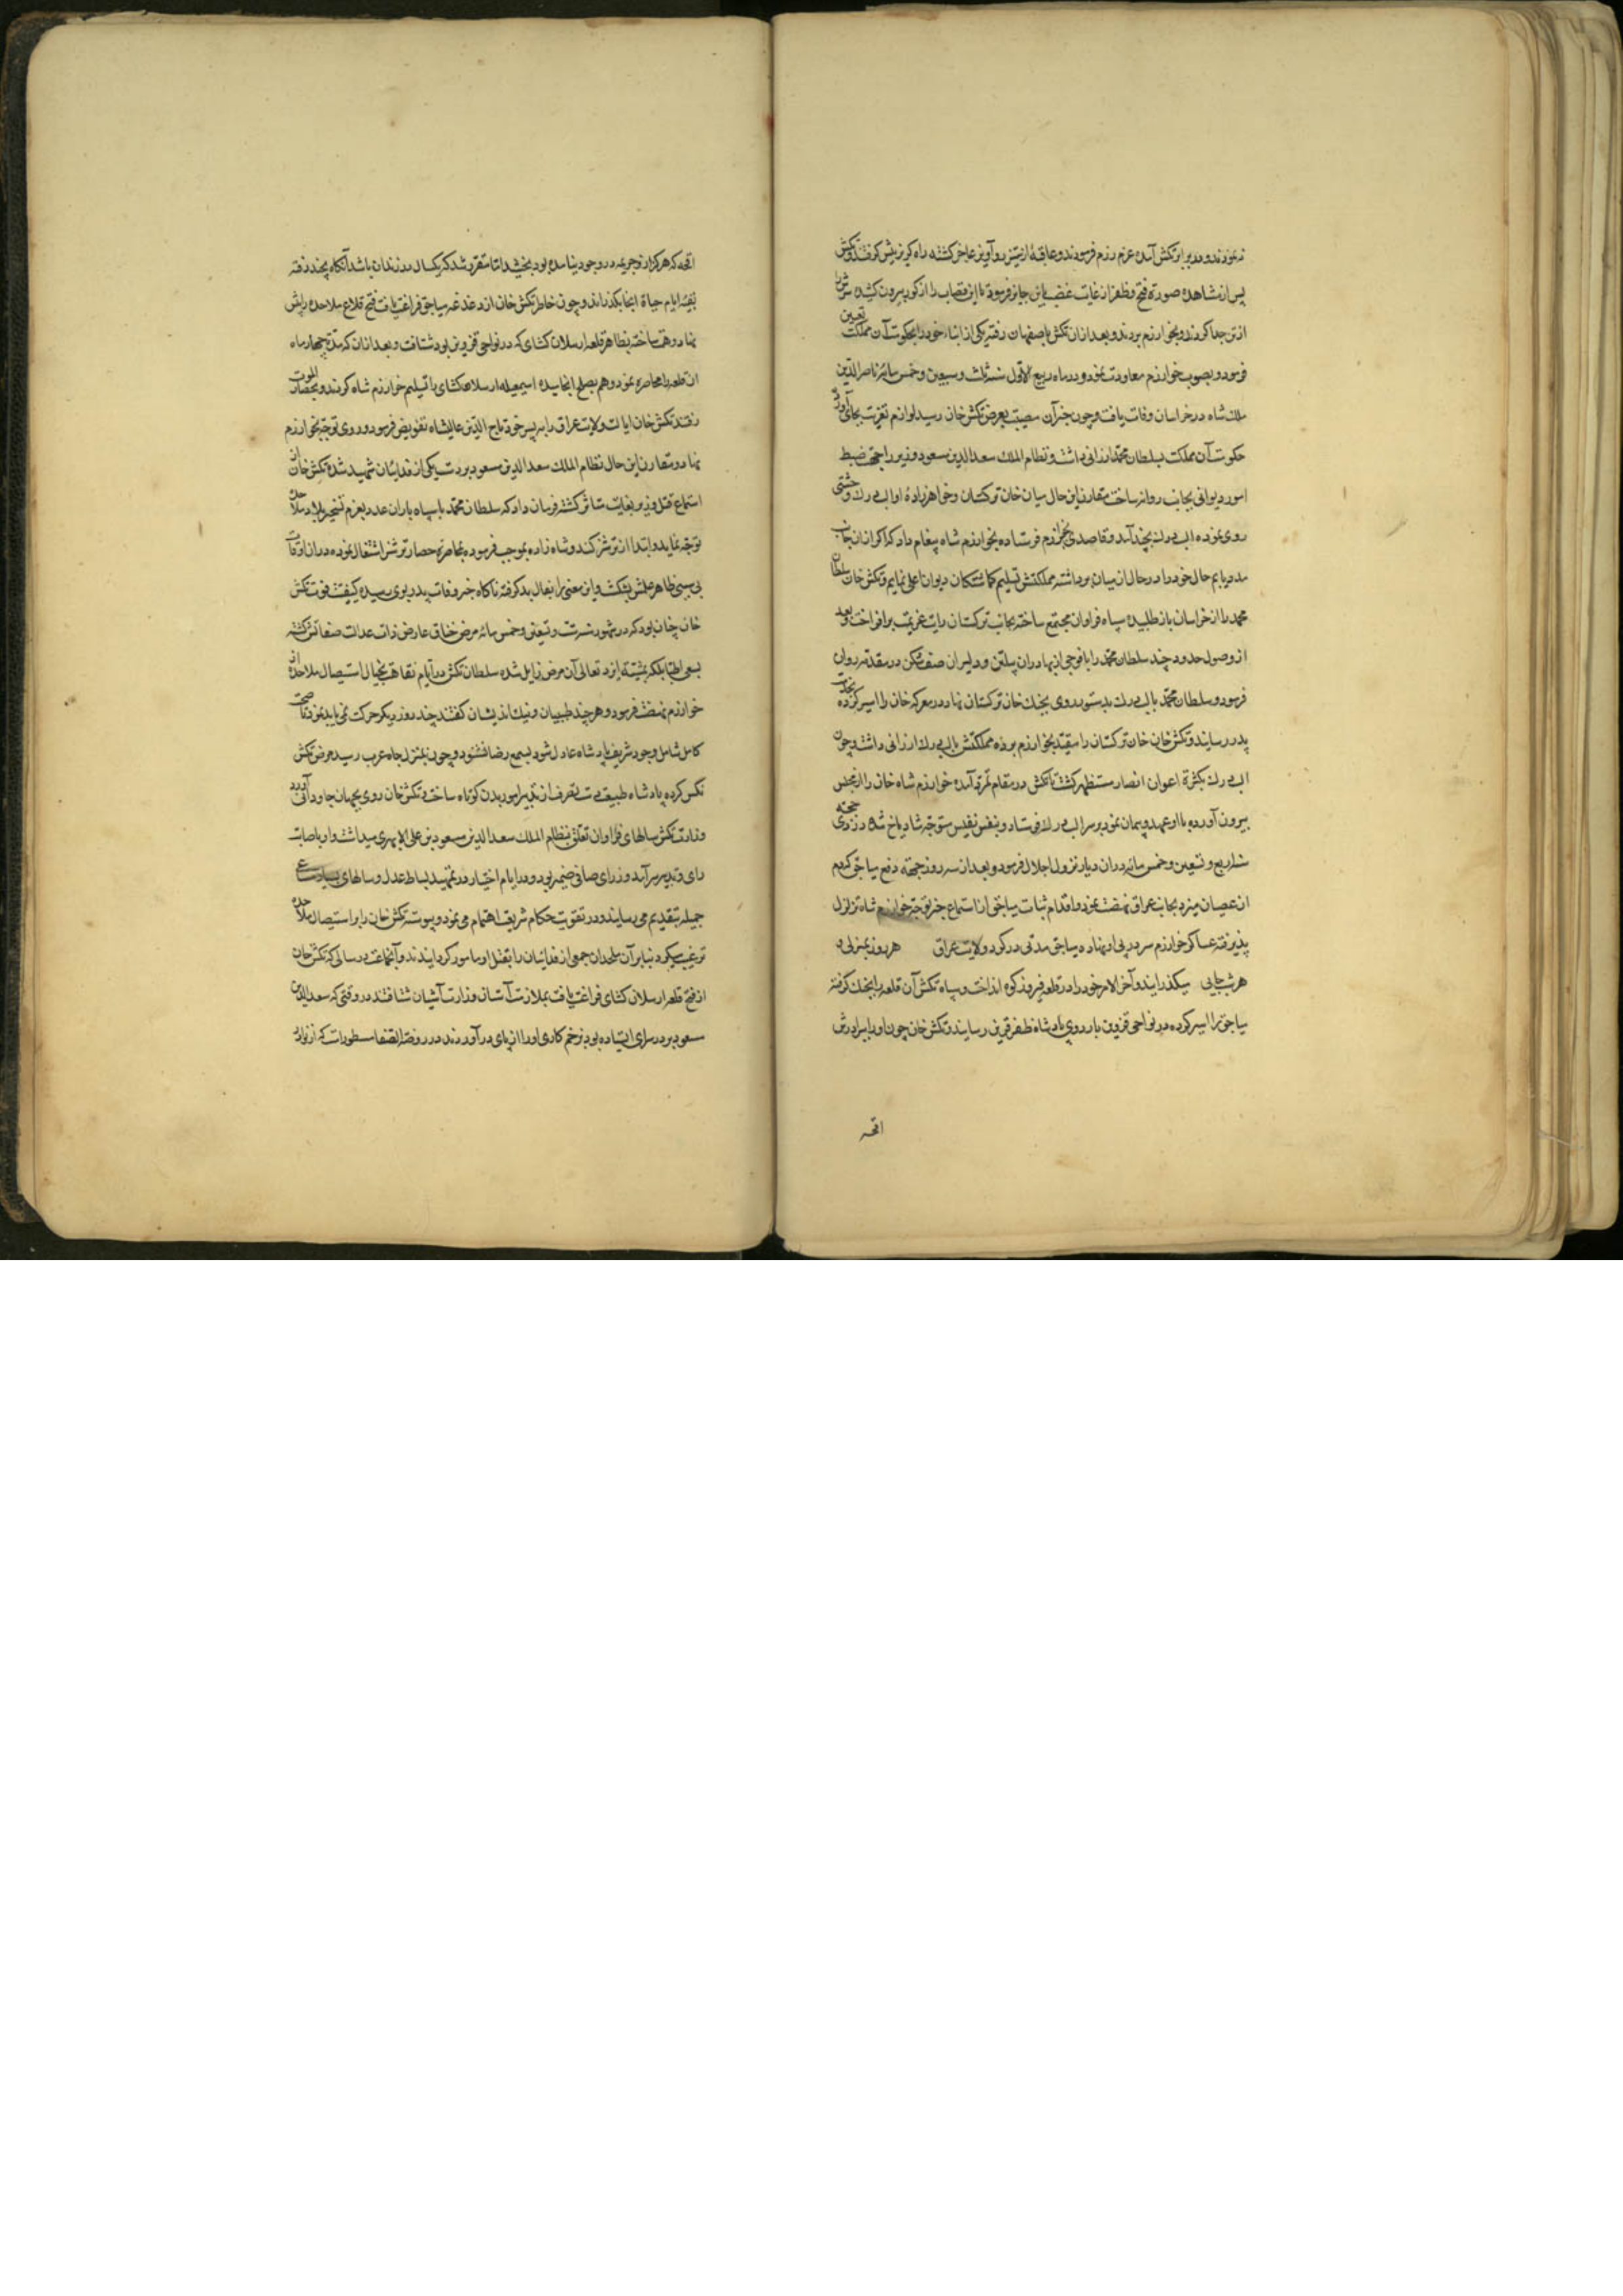 نمودند و در برابر تکش آمده عزم رزم فرمودند و عاقبة از ستیز و آویز عاجز کشته راه کریز پیش کرفتند و تکش
پس از مشاهده صورة فتح و ظفر از غایت غضب باین جایز فرمود تا ابن قصاب را از کور بیرون کشیده سرش را
از تن جدا کردند و بخوارزم بردند و بعد از ان تکش باصفهان رفته یکی از ابناء خود را بحکومت آن مملکت تعیین
فرمود و بصوب خوارزم معاودت نمود و در ماه ربیع الاول سنه ثلث و سبعین و خمس مائه ناصر الدین
ملک شاه در خراسان وفات یافت و چون خبر آن مصیبت بعرض تکش خان رسید لوازم تعزیت بجای آورد
حکومت آن مملکت بسلطان محمد ارزانی داشت و نظام الملک سعد الدین مسعود وزیر را جهة ضبط
امور دیوانی بجانب روانه ساخت مقارن این حال میان خان ترکستان و خواهرزادهٔ او الب درک وحشتی
روی نموده الب درک بجند آمد و قاصدی بخوارزم فرستاده بخوارزم شاه پیغام داد که اکر از ان جانب
مدد یابم حال خود را در حال از میان برداشته مملکتش تسلیم کماشتکان دیوان اعلی نمایم و تکش خان سلطان
محمد را از خراسان باز طلبیده سپاه فراوان مجتمع ساخته بجانب ترکستان رایت عزیمت برافراخت و بعد
از وصول حدود جند سلطان محمد را با فوجی از بهادران پیلتن و دلیران صف شکن در مقدمه روان
فرمود و سلطان محمد با الب درک بدستور روی بجنک خان ترکستان نهاد در معرکه خان را اسیر کرده بخدمت
پدر رسانید و تکش خان خان ترکستان را مقید بخوارزم برده مملکتش با الب درک ارزانی داشت و چون
الب درک بکثرة اعوان انصار مستظهر کشت با تکش در مقام تمرد آمده خوارزم شاه خان را از محبس
بیرون آورده با او عهد و پیمان نمود بر سر الب درک فرستاد و بنفس نفیس متوجه شادیاخ شد در ذی حجه
سنه اربع و تسعین و خمس مائه در ان دیار نزول اجلال فرمود و بعد از سه روز جهة دفع میاجق که دم
از عصیان میزد بجانب عراق نهضت نمود و اقدام ثبات میاجق از استماع خبر توجه خوارزم شاه تزلزل
پذیرفته عساکر خوارزم سر در پی او نهاده میاجق مدتی در کرد ولایت عراق هر روز بمنزلی و
هر شب بجایی میکذرانید و آخر الامر خود را در قلعه فیروز کوه انداخت و سپاه تکش آن قلعه را بجنک کرفته
میاجق را اسیر کرده در نواحی قزوین باردوی پادشاه ظفر قرین رسانیدند تکش خان چون او را ببرادرش
اقجه
اقجه که هرکز از و جریمه در وجود نیامده بود بخشید اما مقرر شد که یکسال در زندان باشد آنکاه بجند رفته
بقیهٔ ایام حیاة انجا بکذراند و چون خاطر تکش خان از دغدغه میاجق فراغت یافت فتح قلاع ملاحده را پیش
نهاد همت ساخته بظاهر قلعه ارسلان کشای که در نواحی قزوین بود شتافت و بعد از ان که مدة چهار ماه
آن قلعه را محاصره نمود و هم بصلح انجامیده اسمعیلیه ارسلان کشای را تسلیم خوارزم شاه کردند و بحصار الموت
رفتند تکش خان ایالت ولایت عراق را به پسر خود تاج الدین عالیشاه تفویض فرمود و روی توجه بخوارزم
نهاد و مقارن این حال نظام الملک سعد الدین مسعود بر دست یکی از فدائیان شهید شده تکش خان از
استماع قتل وزیر بغایت متاثر کشته فرمان داد که سلطان محمد با سپاه باران عدد بعزم تسخیر بلاد ملاحده
توجه نماید و ابتدا از ترشیز کند و شاه زاده بموجب فرموده بمحاصره حصار ترشیز اشتغال نموده در ان اوقات
بی سببی ظاهر علمش بشکست و این معنی را بفال بد کرفته ناکاه خبر وفات پدر بوی رسید و کیفیت فوت تکش
خان چنان بود که در شهور سنه ست و تسعین و خمس مائه مرض خناق عارض ذات عدالت صفاتش کشته
بسعی اطبا بلکه بمشیته ایزد تعالی آن مرض زایل شده سلطان تکش در ایام نقاهت بخیال استیصال ملاحده از
خوارزم نهضت فرمود و هر چند طبیبان و نیک اندیشان کفتند چند روز دیکر حرکت نمی باید نمود تا صحت
کامل شامل وجود شریف پادشاه عادل شود بسمع رضا نشنود و چون بمنزل چاه عرب رسید مرض تکش
نکس کرده پادشاه طبیعت دست تصرف از تدبیر امور بدن کوتاه ساخت و تکش خان روی بجهان جاودانی آورد
وزارت تکش سالهای فراوان تعلق بنظام الملک سعد الدین مسعود بن علی الابهری میداشت و او باصابت
رای و تدبیر سرآمد وزرای صافی ضمیر بود و در ایام اختیار در تمهید بساط عدل و سالهای مساعی
جمیله بتقدیم می رسانید و در تقویت حکام شریعت اهتمام می نمود و پیوسته تکش خان را بر استیصال ملاحده
ترغیب میکرد بنابر آن ملحدان جمعی از فدائیان را بقتل او مامور کردانیدند و آنجماعت در سالی که تکش خان
از فتح قلعه ارسلان کشای فراغت یافت بملازمت آستان وزارت آشیان شتافتند در وقتی که سعد الدین
مسعود بر در سرای ایستاده بود بزخم کاری او را از پای درآوردند در روضة الصفا مسطور است که از نوادر